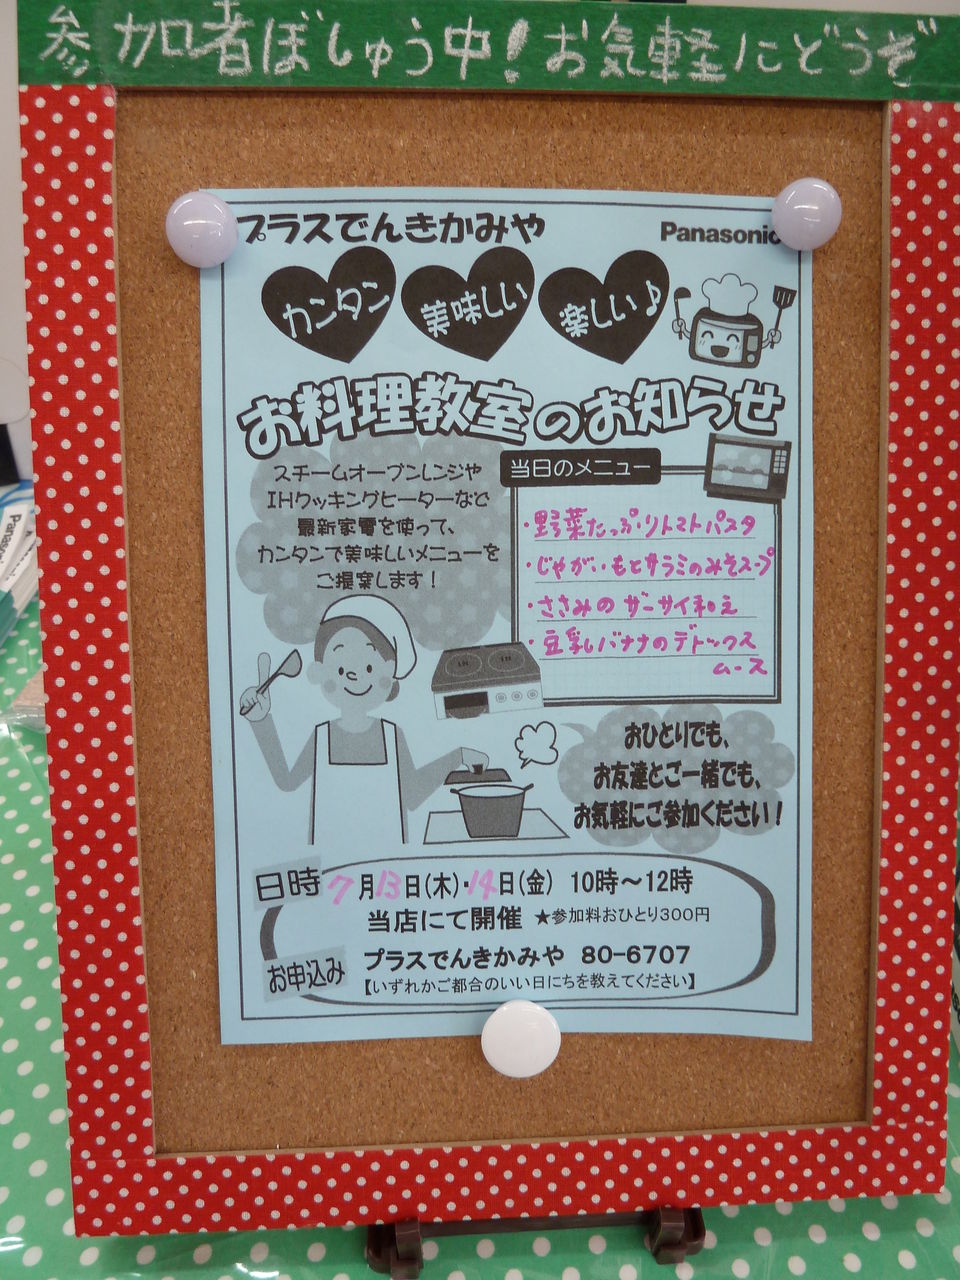 参加者ぼしゅう中!お気軽にどうぞ
プラスでんきかみや
Panasonic
カンタン 美味しい 楽しい♪
お料理教室のお知らせ
スチームオーブンレンジや
IHクッキングヒーターなど
最新家電を使って、
カンタンで美味しいメニューを
ご提案します!
当日のメニュー
・野菜たっぷりトマトパスタ
・じゃがいもとサラミのみそスープ
・ささみのザーサイ和え
・豆乳バナナのデトックス
ムース
おひとりでも、
お友達とご一緒でも、
お気軽にご参加ください!
日時 7月13日(木)・14日(金) 10時〜12時
当店にて開催 ★参加料おひとり300円
お申込み プラスでんきかみや 80-6707
【いずれかご都合のいい日にちを教えてください】